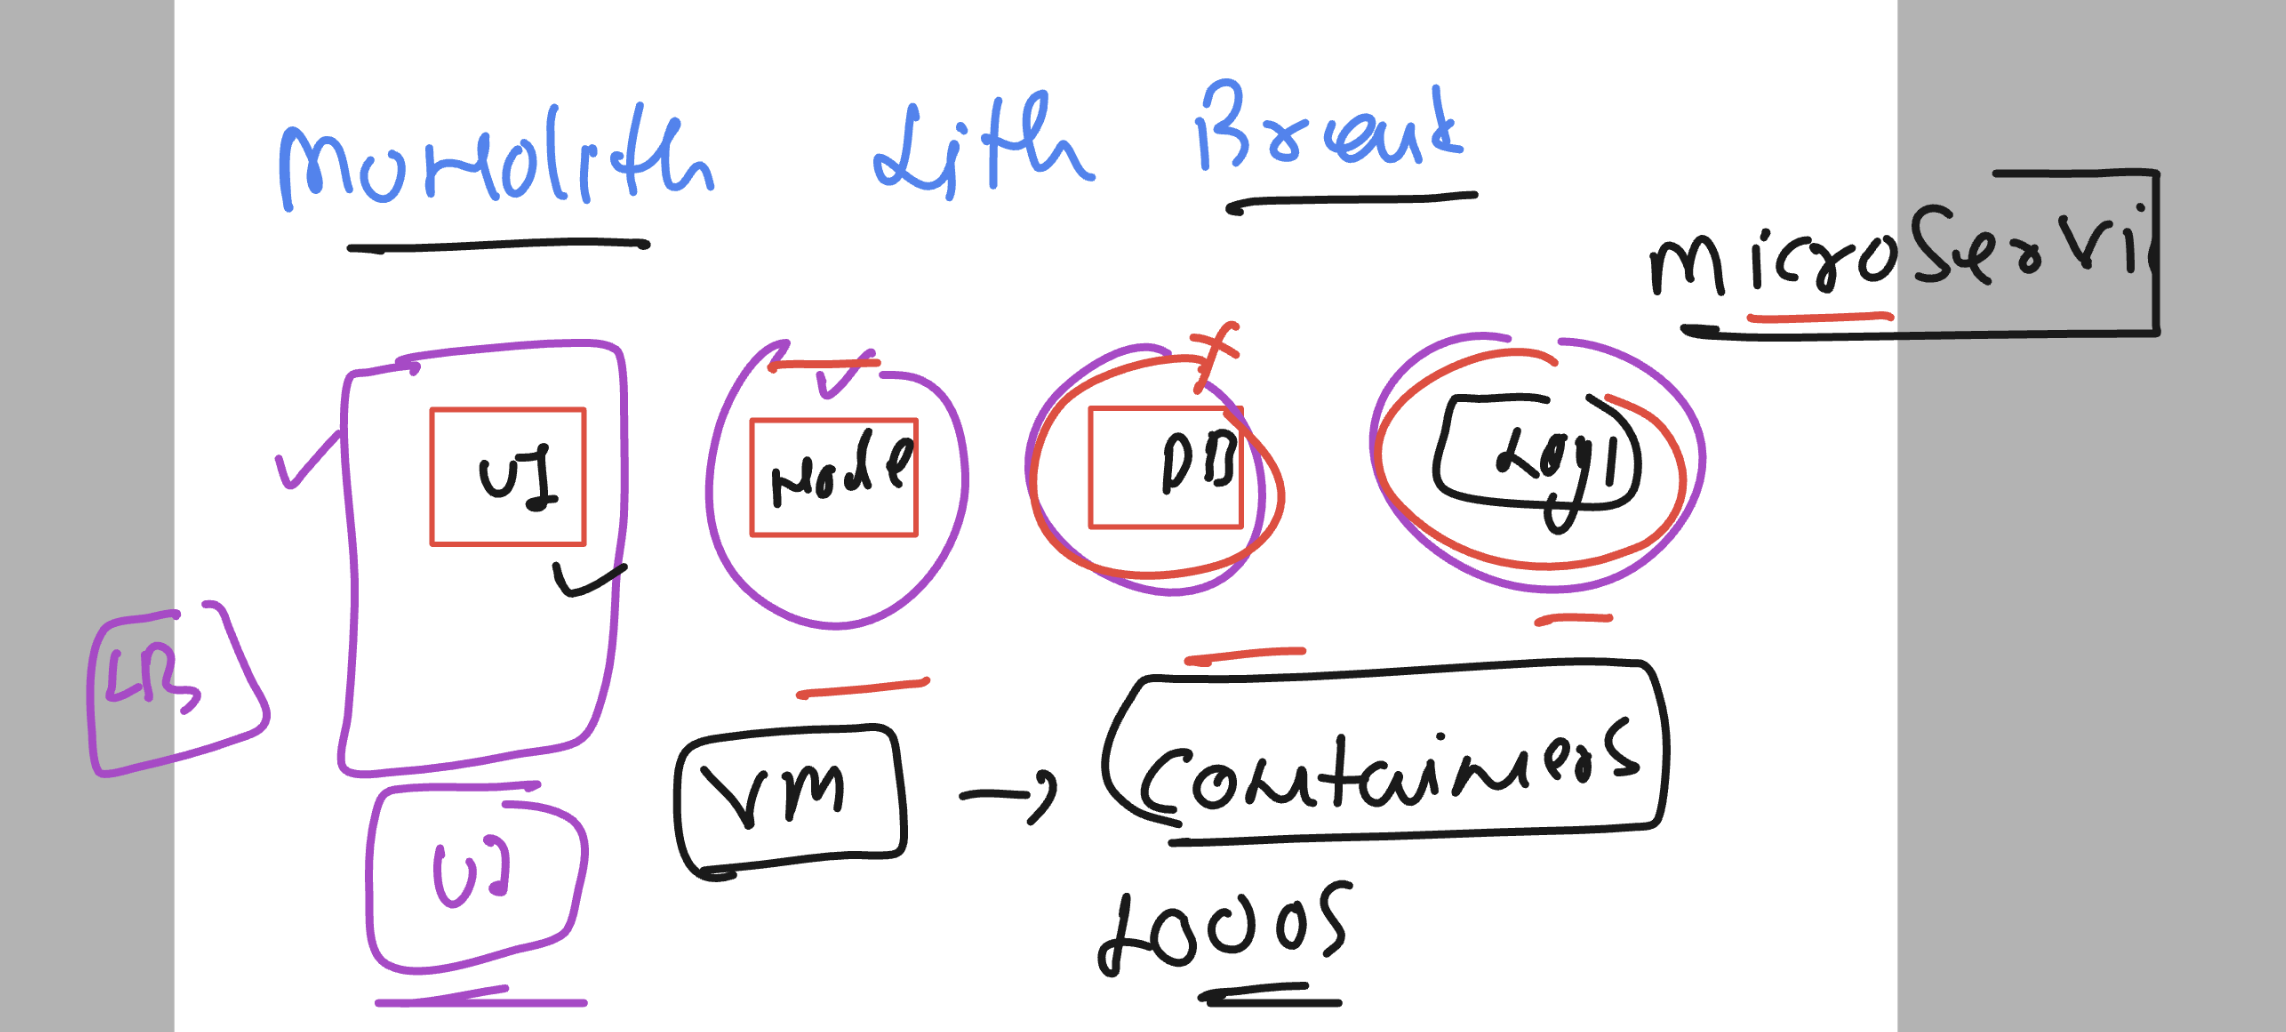 Monolith Lith Break
MicroServi
UI Node DB Logi
LB
VM → Containers
UI
1000s